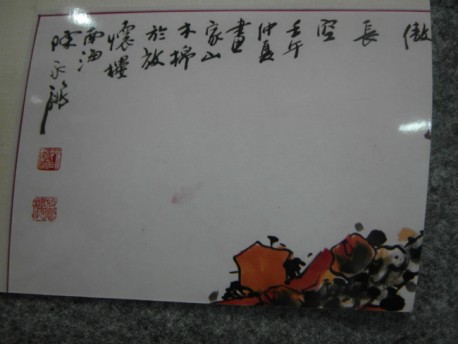 傲
長
空
壬午
仲夏
畫
家山
木棉
於放
懷樓
南海
陳永鏘